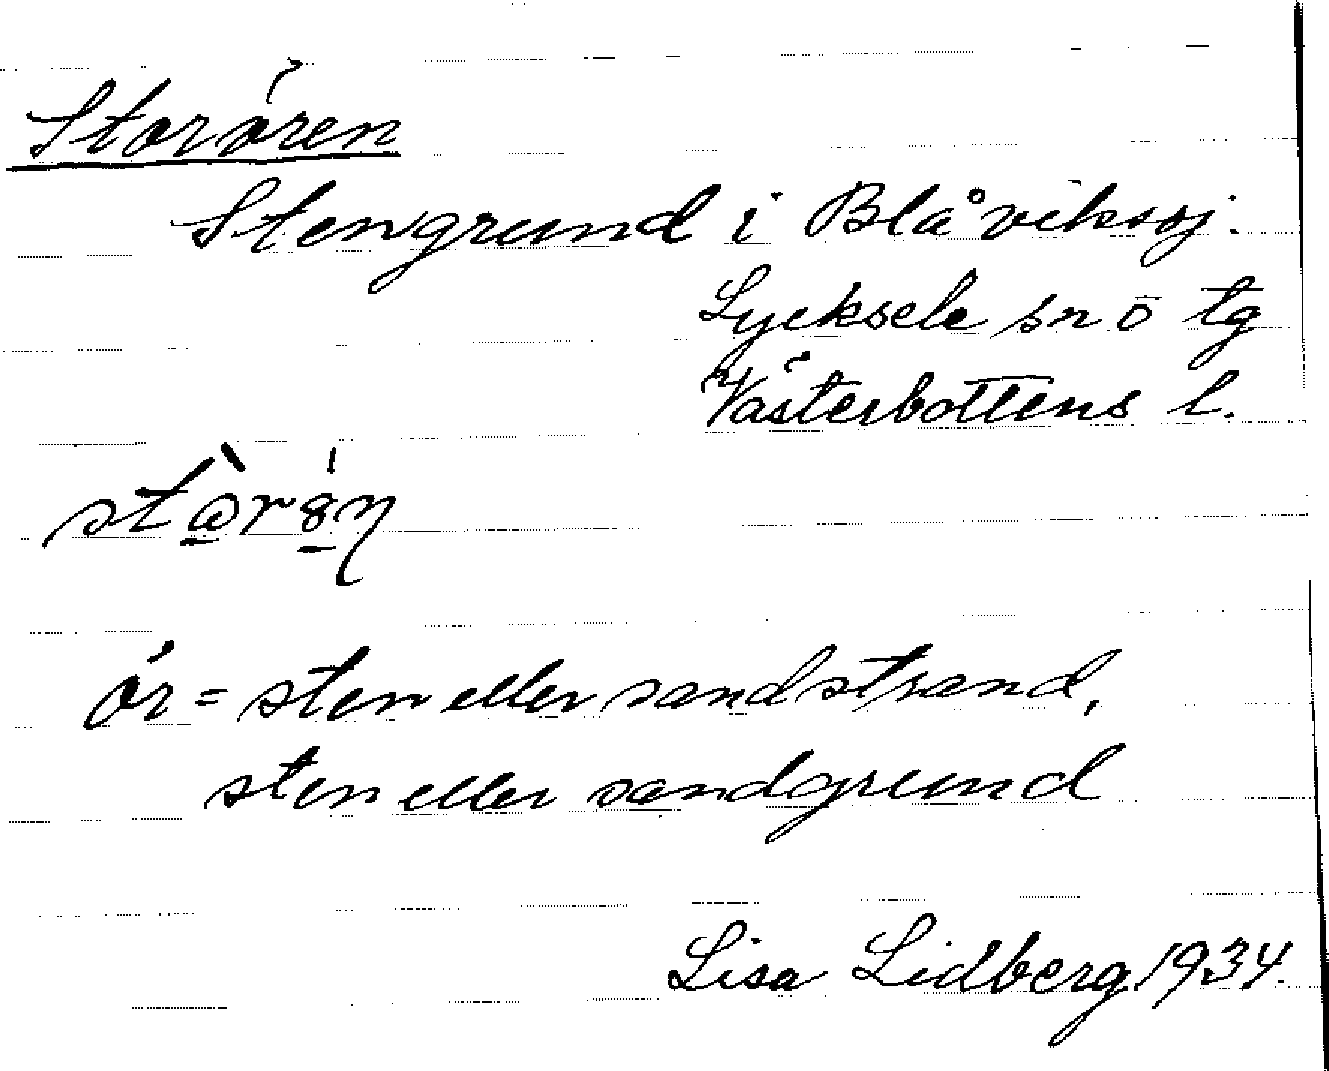 Storören
Stengrund i Blåviksj.
Lycksele sn o tg
Västerbottens l.
ör = sten eller sandstrand,
sten eller sandgrund
Lisa Lidberg 1934.